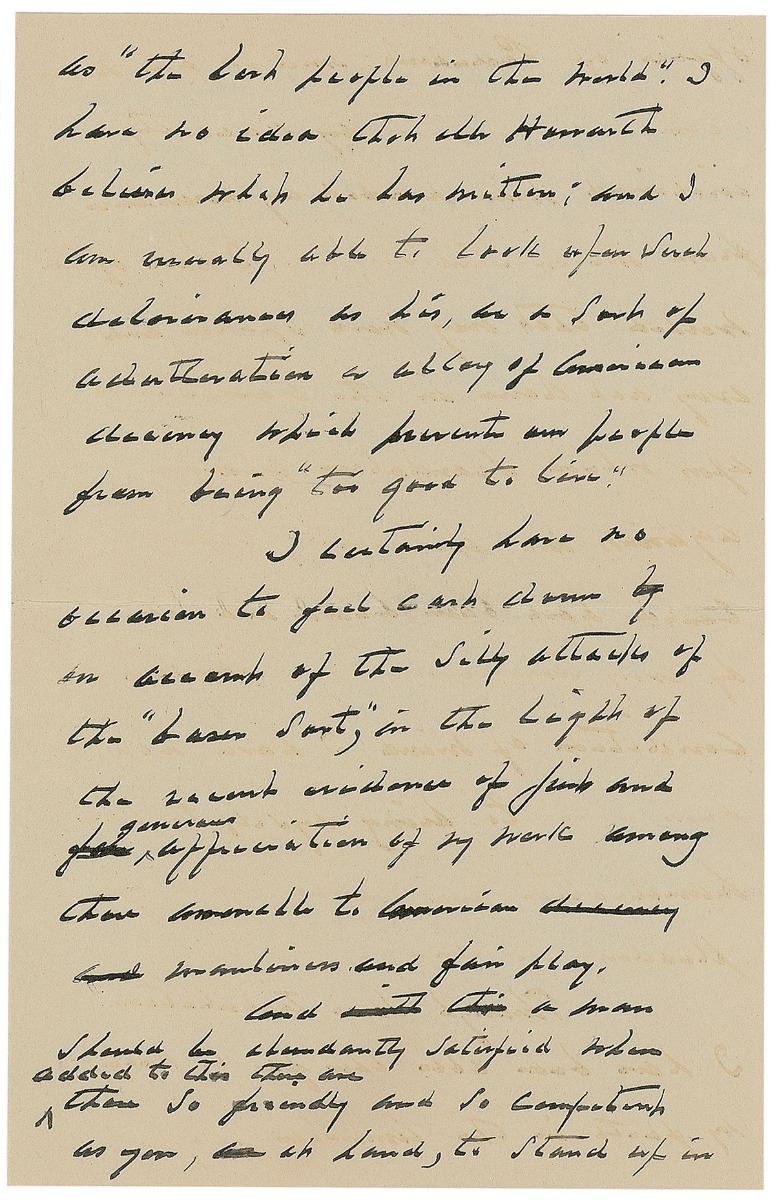 as "the best people in the world". I
have no idea that Mr Howarth
believes what he has written; and I
am usually able to look upon such
deliverances as his, as a sort of
adulteration or alloy of American
decency which prevents our people
from being "too good to live."
I certainly have no
occasion to feel cast down by
on account of the silly attacks of
the "baser sort," in the light of
the recent evidence of just and
generous
fair appreciation of my work among
those amenable to American decency
and manliness and fair play.
And with this a man
should be abundantly satisfied when
added to this there are
those so friendly and so competent
as you, as at hand, to stand up in